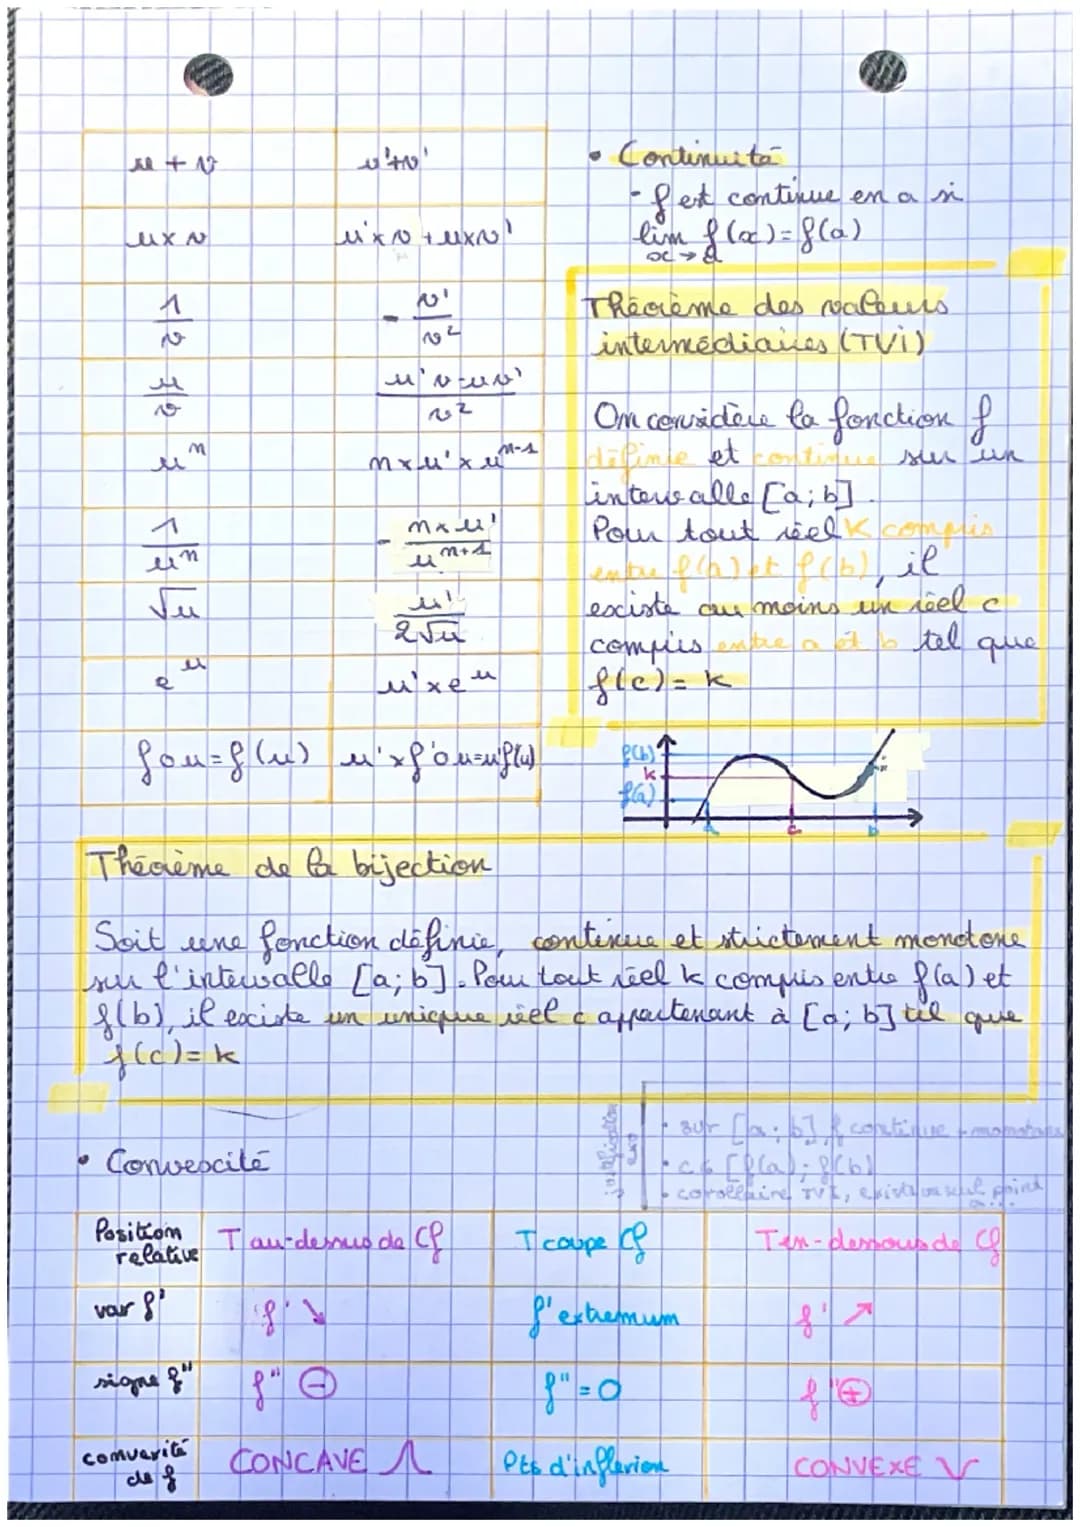 u + v	u'+v'
u×v	u'×v+u×v'
1/v	- v'/v²
u/v	u'v-uv'/v²
uⁿ	n×u'×uⁿ⁻¹
1/uⁿ	- n×u'/uⁿ⁺¹
√u	u'/2√u
eᵘ	u'×eᵘ
fou=f(u)	u'×f'ou=u'f(u)
• Continuité
- f est continue en a si
lim f(x)=f(a)
x→a
Théorème des valeurs
intermédiaires (TVi)
On considère la fonction f
définie et continue sur un
intervalle [a;b].
Pour tout réel K compris
entre f(a) et f(b), il
existe au moins un réel c
compris entre a et b tel que
f(c)= k
f(b)
k
f(a)
a c b
Théorème de la bijection
Soit une fonction définie, continue et strictement monotone
sur l'intervalle [a;b]. Pour tout réel k compris entre f(a) et
f(b), il existe un unique réel c appartenant à [a;b] tel que
f(c)= k
justification
exo
• sur [a;b], f continue + monotone
• c ∈ [f(a);f(b)]
• corollaire TVI, existe un seul point
• Convexité
Position relative	T au-dessus de Cf	T coupe Cf	T en-dessous de Cf
var f'	f' ↘	f' extremum	f' ↗
signe f''	f'' ⊖	f''=0	f'' ⊕
convexité de f	CONCAVE	Pts d'inflexion	CONVEXE